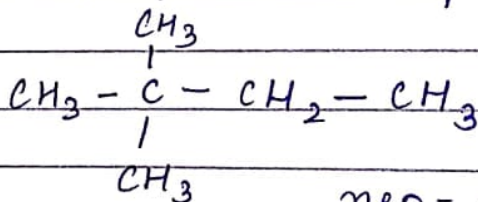 CH3
CH3 - C - CH2 - CH3
CH3
neo-